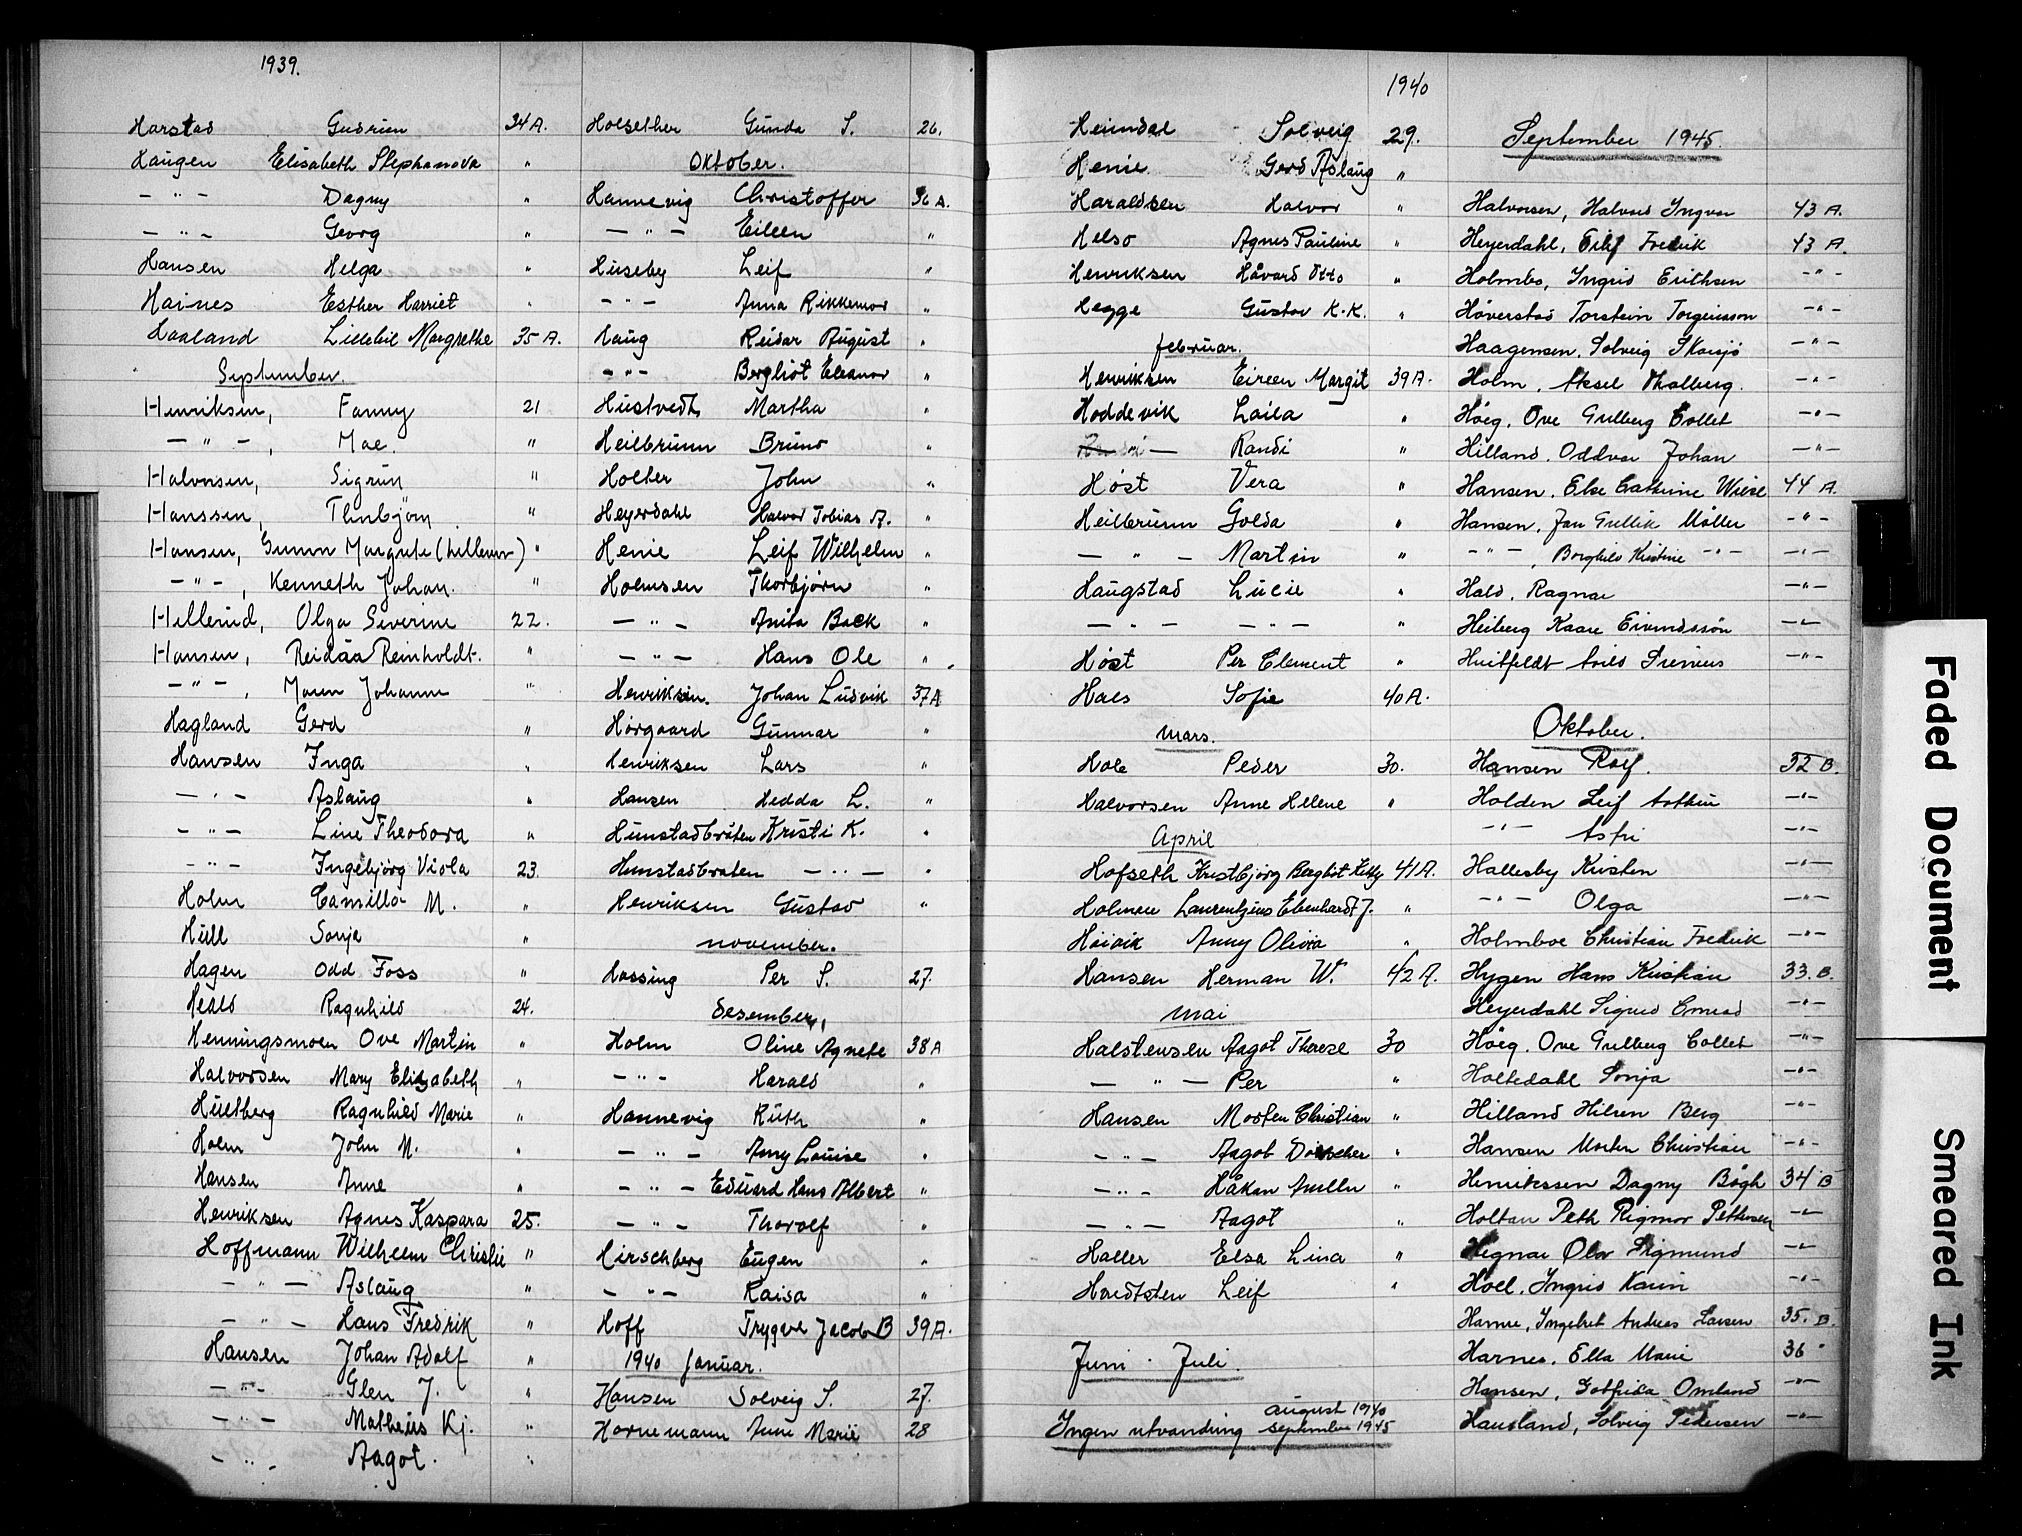 1939.
Harstad Gudrun 34 A.
Haugen Elisabeth Stephanova "
— " — Dagny "
— " — Georg "
Hansen Helga "
Haines Esther Harriet "
Haaland Lillebil Margrethe 35 A.
September.
Henriksen, Fanny 21
— " —, Mae. "
Halvorsen, Sigrun "
Hanssen, Thorbjörn "
Hansen, Gunvor Margrete (Lillemor) "
— " —, Kenneth Johan. "
Hellerud, Olga Severine 22.
Hansen, Reidar Reinholdt. "
— " —, Maren Johanne "
Hagland Gerd "
Hansen Inga "
— " — Aslaug "
— " — Line Theodora "
— " — Ingebjörg Viola 23
Holm Camilla M. "
Hull Sonja "
Hagen Odd Foss "
Hedls Ragnhild 24.
Henningsmoen Ove Martin "
Halvorsen Mary Elizabeth "
Hultberg Ragnhild Marie "
Holm John M. "
Hansen Anne "
Henriksen Agnes Kaspara 25.
Hoffmann Wilhelm Christie "
— " — Aslaug "
— " — Hans Fredrik "
Hansen Johan Adolf "
— " — Glen J. "
— " — Matheus Kj. "
— " — Aagot. "
Holsether Gunda S. 26.
Oktober.
Hannevig Christoffer 36 A.
— " — Eileen "
Huseby Leif "
— " — Anna Rikkemor "
Haug Reidar August "
— " — Bergliot Eleanor "
Hustvedt Martha "
Heilbrunn Bruno "
Holter John "
Heyerdahl Halvor Tobias A. "
Henie Leif Wilhelm "
Holmsen Thorbjørn "
— " — Anita Back "
— " — Hans Ole "
Henriksen. Johan Ludvik 37 A
Hörgaard Gunnar "
Henriksen Lars "
Hansen Hedda L. "
Hunstadbråten Kristi K. "
Hunstadbraten — " — "
Henriksen Gustav "
november.
Hassing Per S. 27.
desember,
Holm Oline Agnete 38 A
— " — Harald "
Hannevig Ruth "
— " — Amy Louise "
— " — Eduard Hans Albert "
— " — Thorolf "
Hirschberg Eugen "
— " — Raisa "
Hoff Trygve Jacob B 39 A.
1940 Januar.
Hansen Solveig S. 27.
Hornemann Anne Marie 28
1940
Heimdal Solveig 29.
Henie Gerd Aslaug "
Haraldsen Halvor "
Helso Agnes Pauline "
Henriksen Håvard Otto "
Hegge Gustav K.K. "
februar.
Henriksen Eireen Margit 39 A.
Hoddevik Laila "
— " — Randi "
Høst Vera "
Heilbrunn Golda "
— " — Martin "
Haugstad Lucie "
— " — — " — "
Høst Per Clement "
Hals Sofie 40 A.
mars.
Hole Peder 30.
Halvorsen Anne Helene "
April
Hofseth Kristbjörg Bergliot Kitty 41 A.
Holmen Laurentzius Ebenhardt J. "
Håvik Anny Olivia "
Hansen Herman W. 42 A.
mai
Halstensen Aagot Therese 30
— " — Per "
Hansen Morten Christian "
— " — Aagot Doscher "
— " — Håkan "
— " — Aagot "
Haller Elsa Lina "
Hardtsten Leif "
Juni - Juli.
Ingen utvandring august 1940
september 1945
September 1945.
Halvorsen, Halvard Yngvar 43 A.
Heyerdahl, Eilif Fredrik 43 A.
Holmbo, Ingrid Erithsen — " —
Höverstad Torstein Torgeirsson — " —
Haagensen, Solveig Skarsjö — " —
Holm, Aksel Thalberg. — " —
Höeg, Ove Gulberg Collet — " —
Hilland, Oddvar Johan — " —
Hansen, Else Cathrine Wiese 44 A.
Hansen, Jan Gullik Møller — " —
— " —, Borghild Kristine — " — — " —
Hald, Ragnar — " —
Heiberg Kaare Eivindssön — " —
Huitfeldt Arild Sirenius — " —
Oktober.
Hansen Rolf. 32 B.
Holden Leif Arthur — " —
— " — Astri — " —
Hallesby Kristen — " —
— " — Olga — " —
Holmboe Christian Fredrik — " —
Hygen Hans Kristian 33. B.
Heyerdahl Sigurd Conrad — " —
Höeg, Ove Gulberg Collet — " —
Holtedahl Sonja — " —
Hilland Hilsen Berg — " —
Hansen Morten Christian — " —
Henrikssen Dagny Bøgh 34 B
Holtan Peth Rigmor Pettersen — " —
Hegnar Olav Sigmund — " —
Hoel, Ingrid Karin — " —
Hanne, Ingebret Andreas Larsen 35. B.
Harnes, Ella Marie 36 "
Hansen, Gotfrida Omland — " —
Hausland, Solveig Pedersen — " —
Faded Document
Smeared Ink